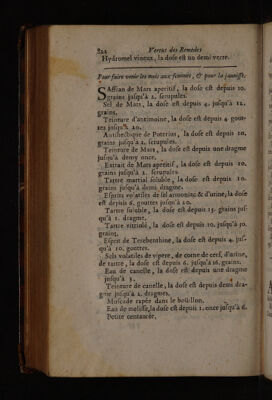 822 Vertus des Remedes
Hydromel vineux, la dose est un demi verre.
Pour faire venir les mois aux femmes, & pour la jaunisse.
SAffran de Mars aperitif, la dose est depuis 10.
grains jusqu'à 2. scrupules.
Sel de Mars, la dose est depuis 4. jusqu'à 12.
grains.
Teinture d'antimoine, la dose est depuis 4 gout-
tes jusqu'à 20.
Antihectique de Poterius, la dose est depuis 10.
grains jusqu'à 2. scrupules.
Teinture de Mars, la dose est depuis une dragme
jusqu'à demy once.
Extrait de Mars aperitif, la dose est depuis 10.
grains jusqu'à 2. scrupules.
Tartre martial soluble, la dose est depuis 10.
grains jusqu'à demi dragme.
Esprits volatiles de sel armoniac & d'urine, la dose
est depuis 6. gouttes jusqu'à 20.
Tartre soluble, la dose est depuis 15. grains jus-
qu'à 1. dragme.
Tartre vitriolé, la dose est depuis 10. jusqu'à 30.
grains.
Esprit de Terebenthine, la dose est depuis 4. jus-
qu'à 10. gouttes.
Sels volatiles de vipere, de corne de cerf, d'urine,
de tartre, la dose est depuis 6. jusqu'à 16. grains.
Eau de canelle, la dose est depuis une dragme
jusqu'à 3.
Teinture de canelle, la dose est depuis demi dra-
gme jusqu'à 2. dragmes.
Muscade rapée dans le boüillon.
Eau de melisse, la dose est depuis 1. once jusqu'à 6.
Petite centaurée,